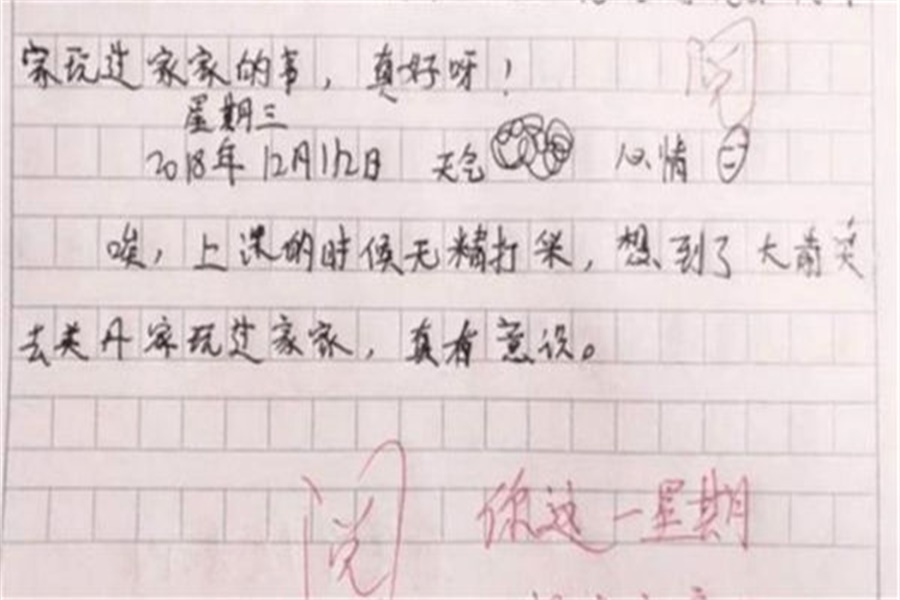 家玩过家家的事，真好呀！
阅
星期三
2018年12月12日 天气 心情
唉，上课的时候无精打采，想到了大前天
去英丹家玩过家家，真有意识。
阅
你这一星期